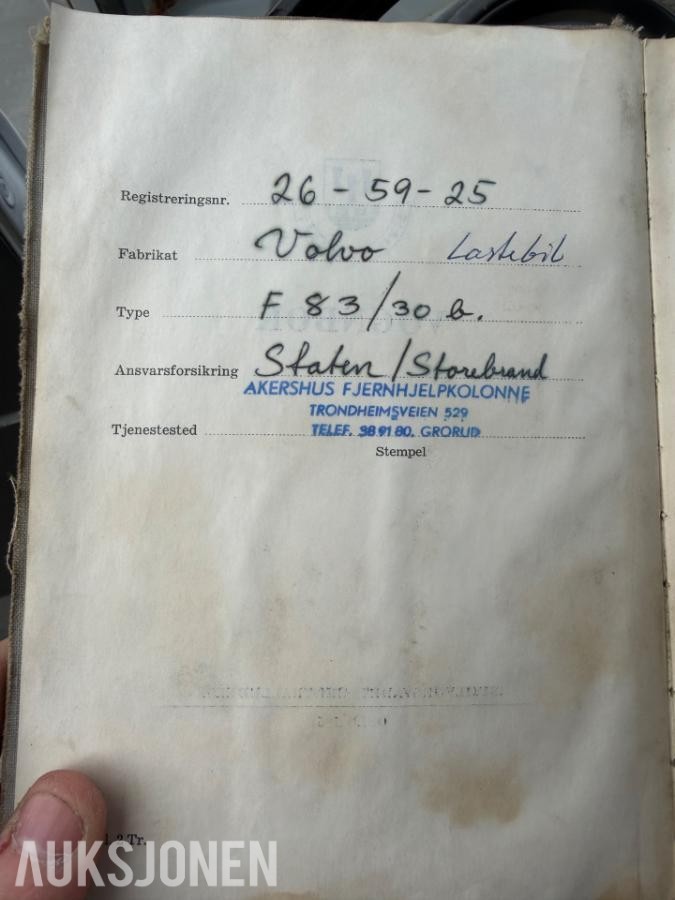 Registreringsnr. 26-59-25
Fabrikat Volvo Lastebil
Type F 83/30 b.
Ansvarsforsikring Staten/Storebrand
AKERSHUS FJERNHJELPKOLONNE
TRONDHEIMSVEIEN 529
Tjenestested TELEF. 38 91 80. GRORUD
Stempel
2 Tr.
AUKSJONEN